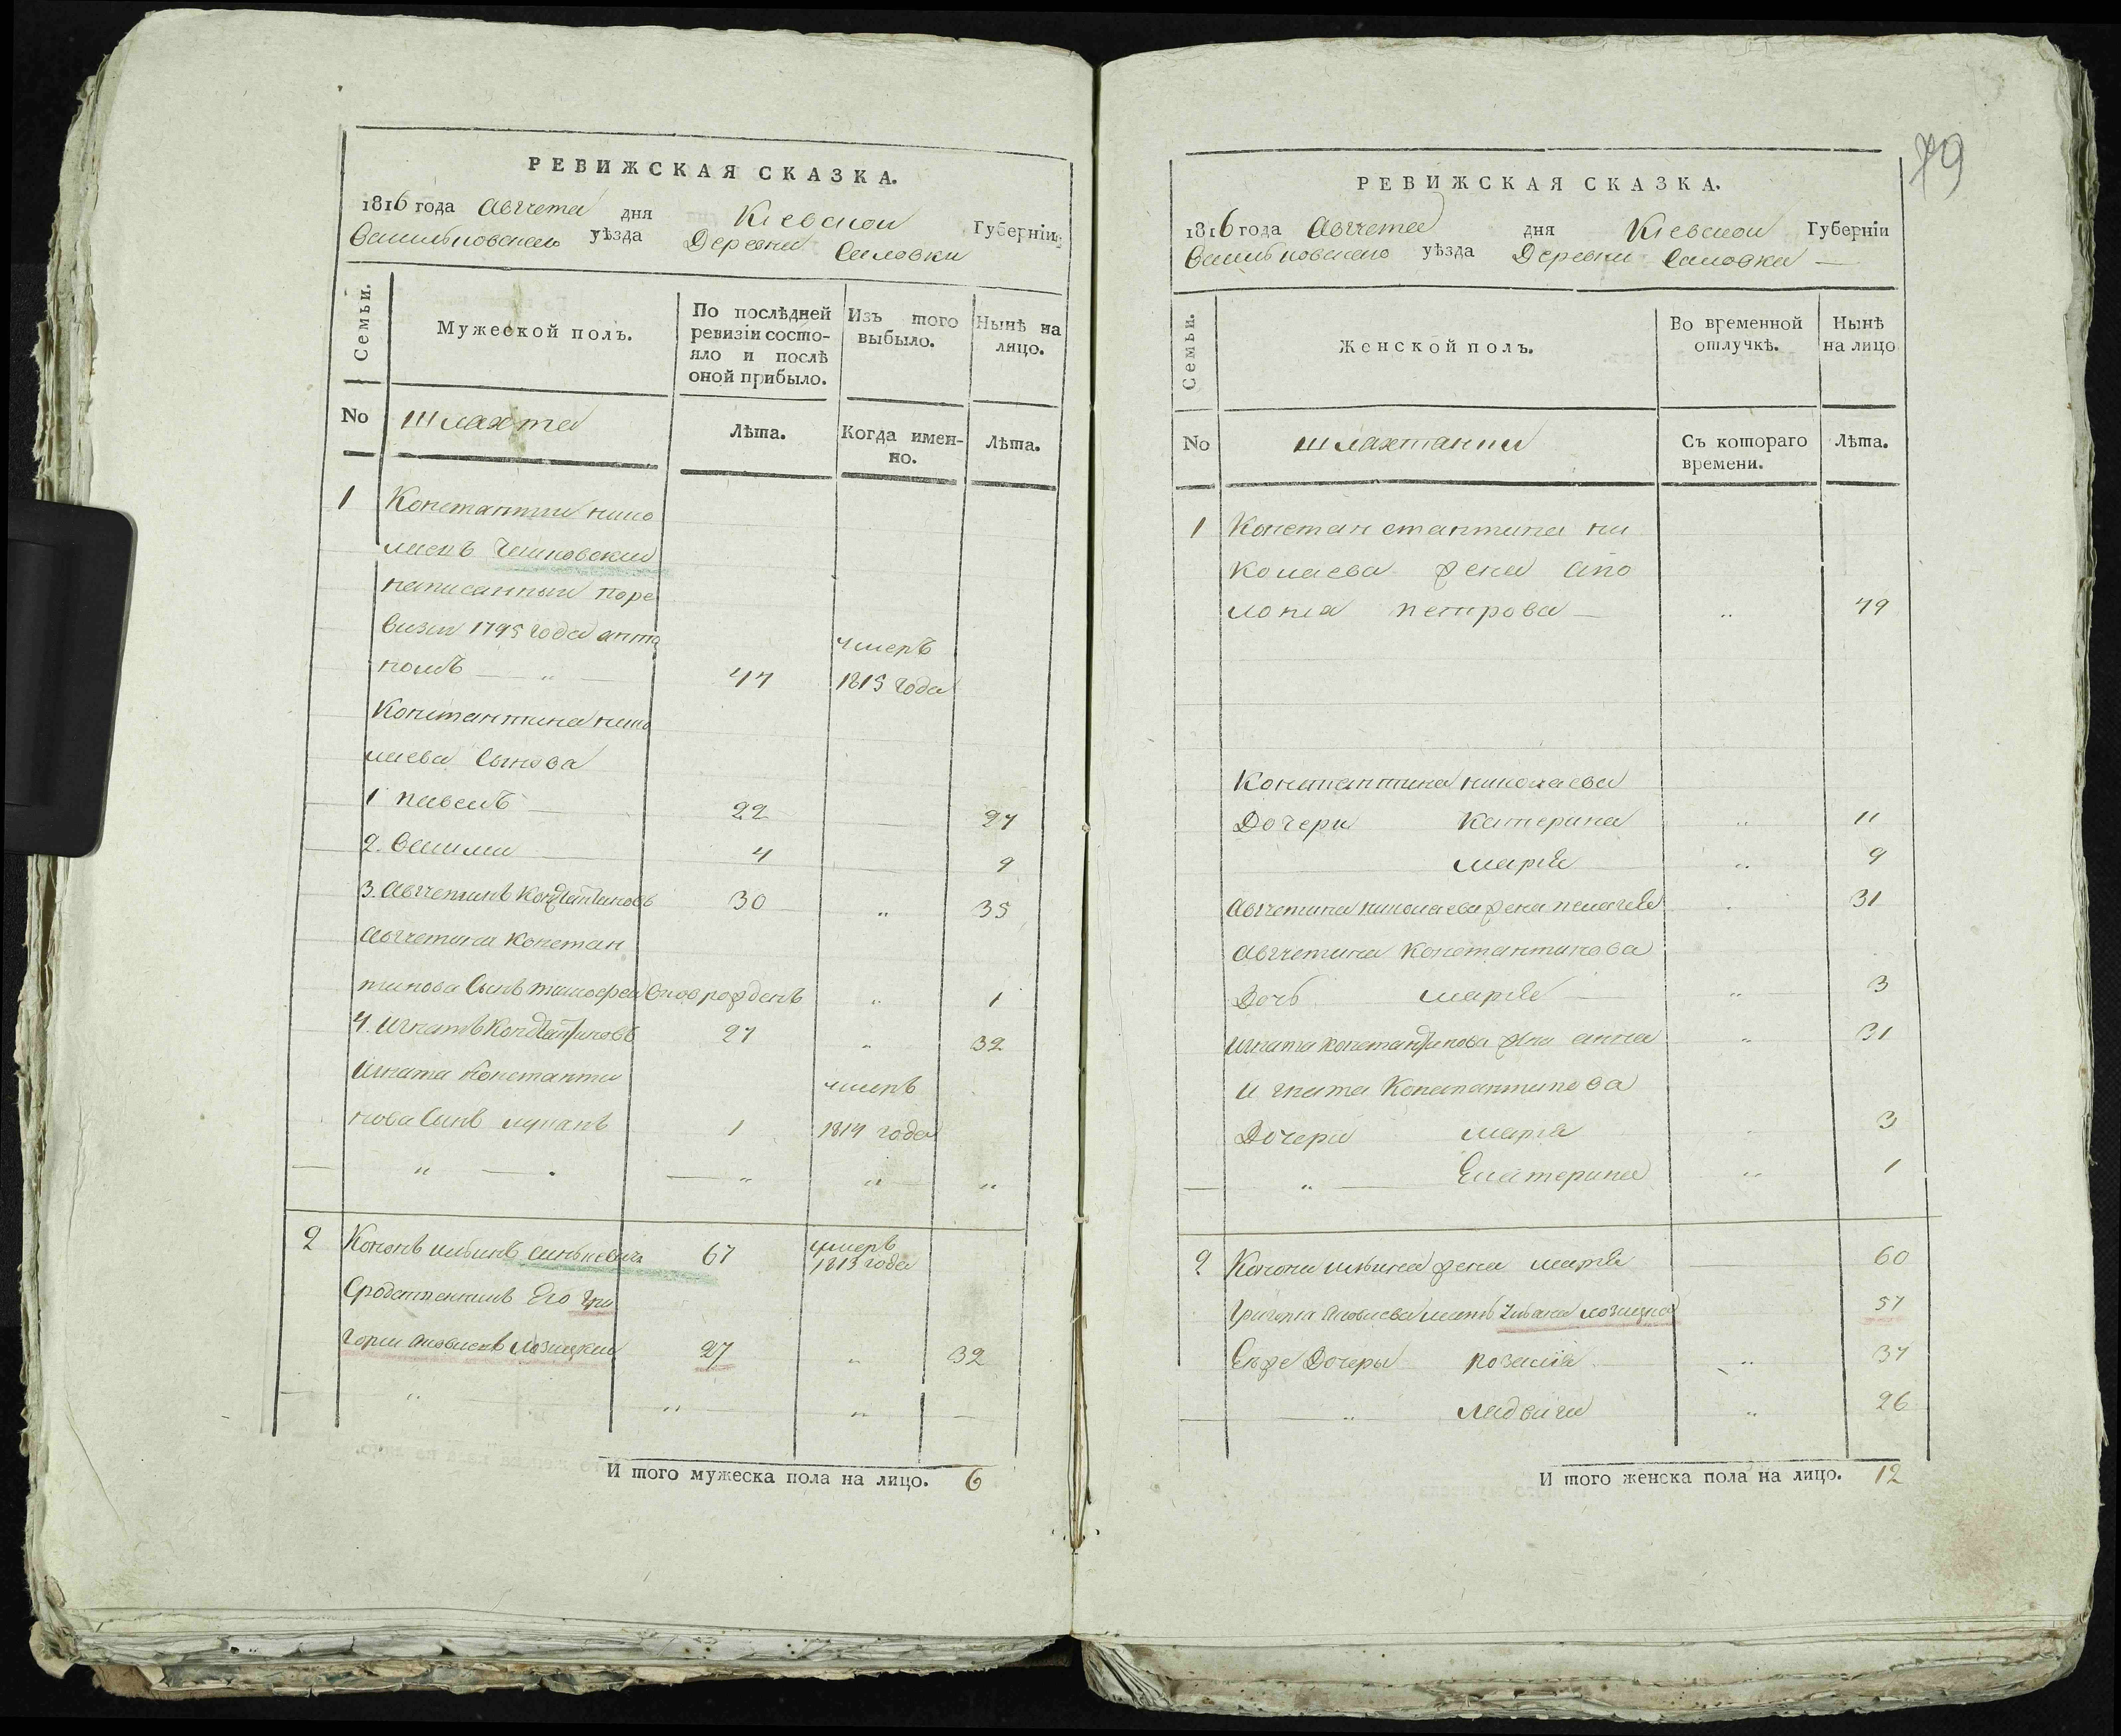 РЕВИЖСКАЯ СКАЗКА.
1816 года Августа дня Кіевской Губерніи
Васильковскаго уѣзда Деревни Саловки
Семьи.
Мужеской полъ.
По послѣдней ревизіи состо-
яло и послѣ
оной прибыло.
Изъ того
выбыло.
Нынѣ на
лицо.
No
Шляхта
Лѣта.
Когда имен-
но.
Лѣта.
1 Константин нико
лаевъ
написанный поре
визіи 1795 года анто
номъ 47 умеръ 1815 года
Константина нико
лаева Сынова
1 павелъ 22 27
2. Василий 4 9
3. Августинъ Константиновъ 30 " 35
Августина Констан
тинова Сынъ тимофей вновь рожденъ " 1
4. Игнатъ Константиновъ 27 " 32
Игната Константи
нова Сынъ лукянъ 1 умеръ 1814 года
" " " "
2 Кононъ ильинъ 67 умеръ 1813 года
Сродственникъ Его гри
горий яковлевъ Лозицкий 27 " 32
" " "
И того мужеска пола на лицо. 6
79
РЕВИЖСКАЯ СКАЗКА.
1816 года Августа дня Кіевской Губерніи
Васильковскаго уѣзда Деревни Саловки
Семьи.
Женской полъ.
Во временной
отлучкѣ.
Нынѣ
на лицо
No
шляхтянки
Съ котораго
времени.
Лѣта.
1 Констан стантина ни
колаева жена апо
лонia петрова " 49
Константина николаева
Дочери Катерина " 11
марiя " 9
Августина николаева жена пелагея 31
Августина Константинова
Дочь марiя " 3
Игната Константинова жена анна " 31
Игната Константинова
Дочери марiя 3
" Екатерина " 1
2 Конона ильина жена марiя 60
Григорiя яковлева мать Улияна лозицка 57
Еяже Дочеры розалiя " 34
" Ладвига " 26
И того женска пола на лицо. 12